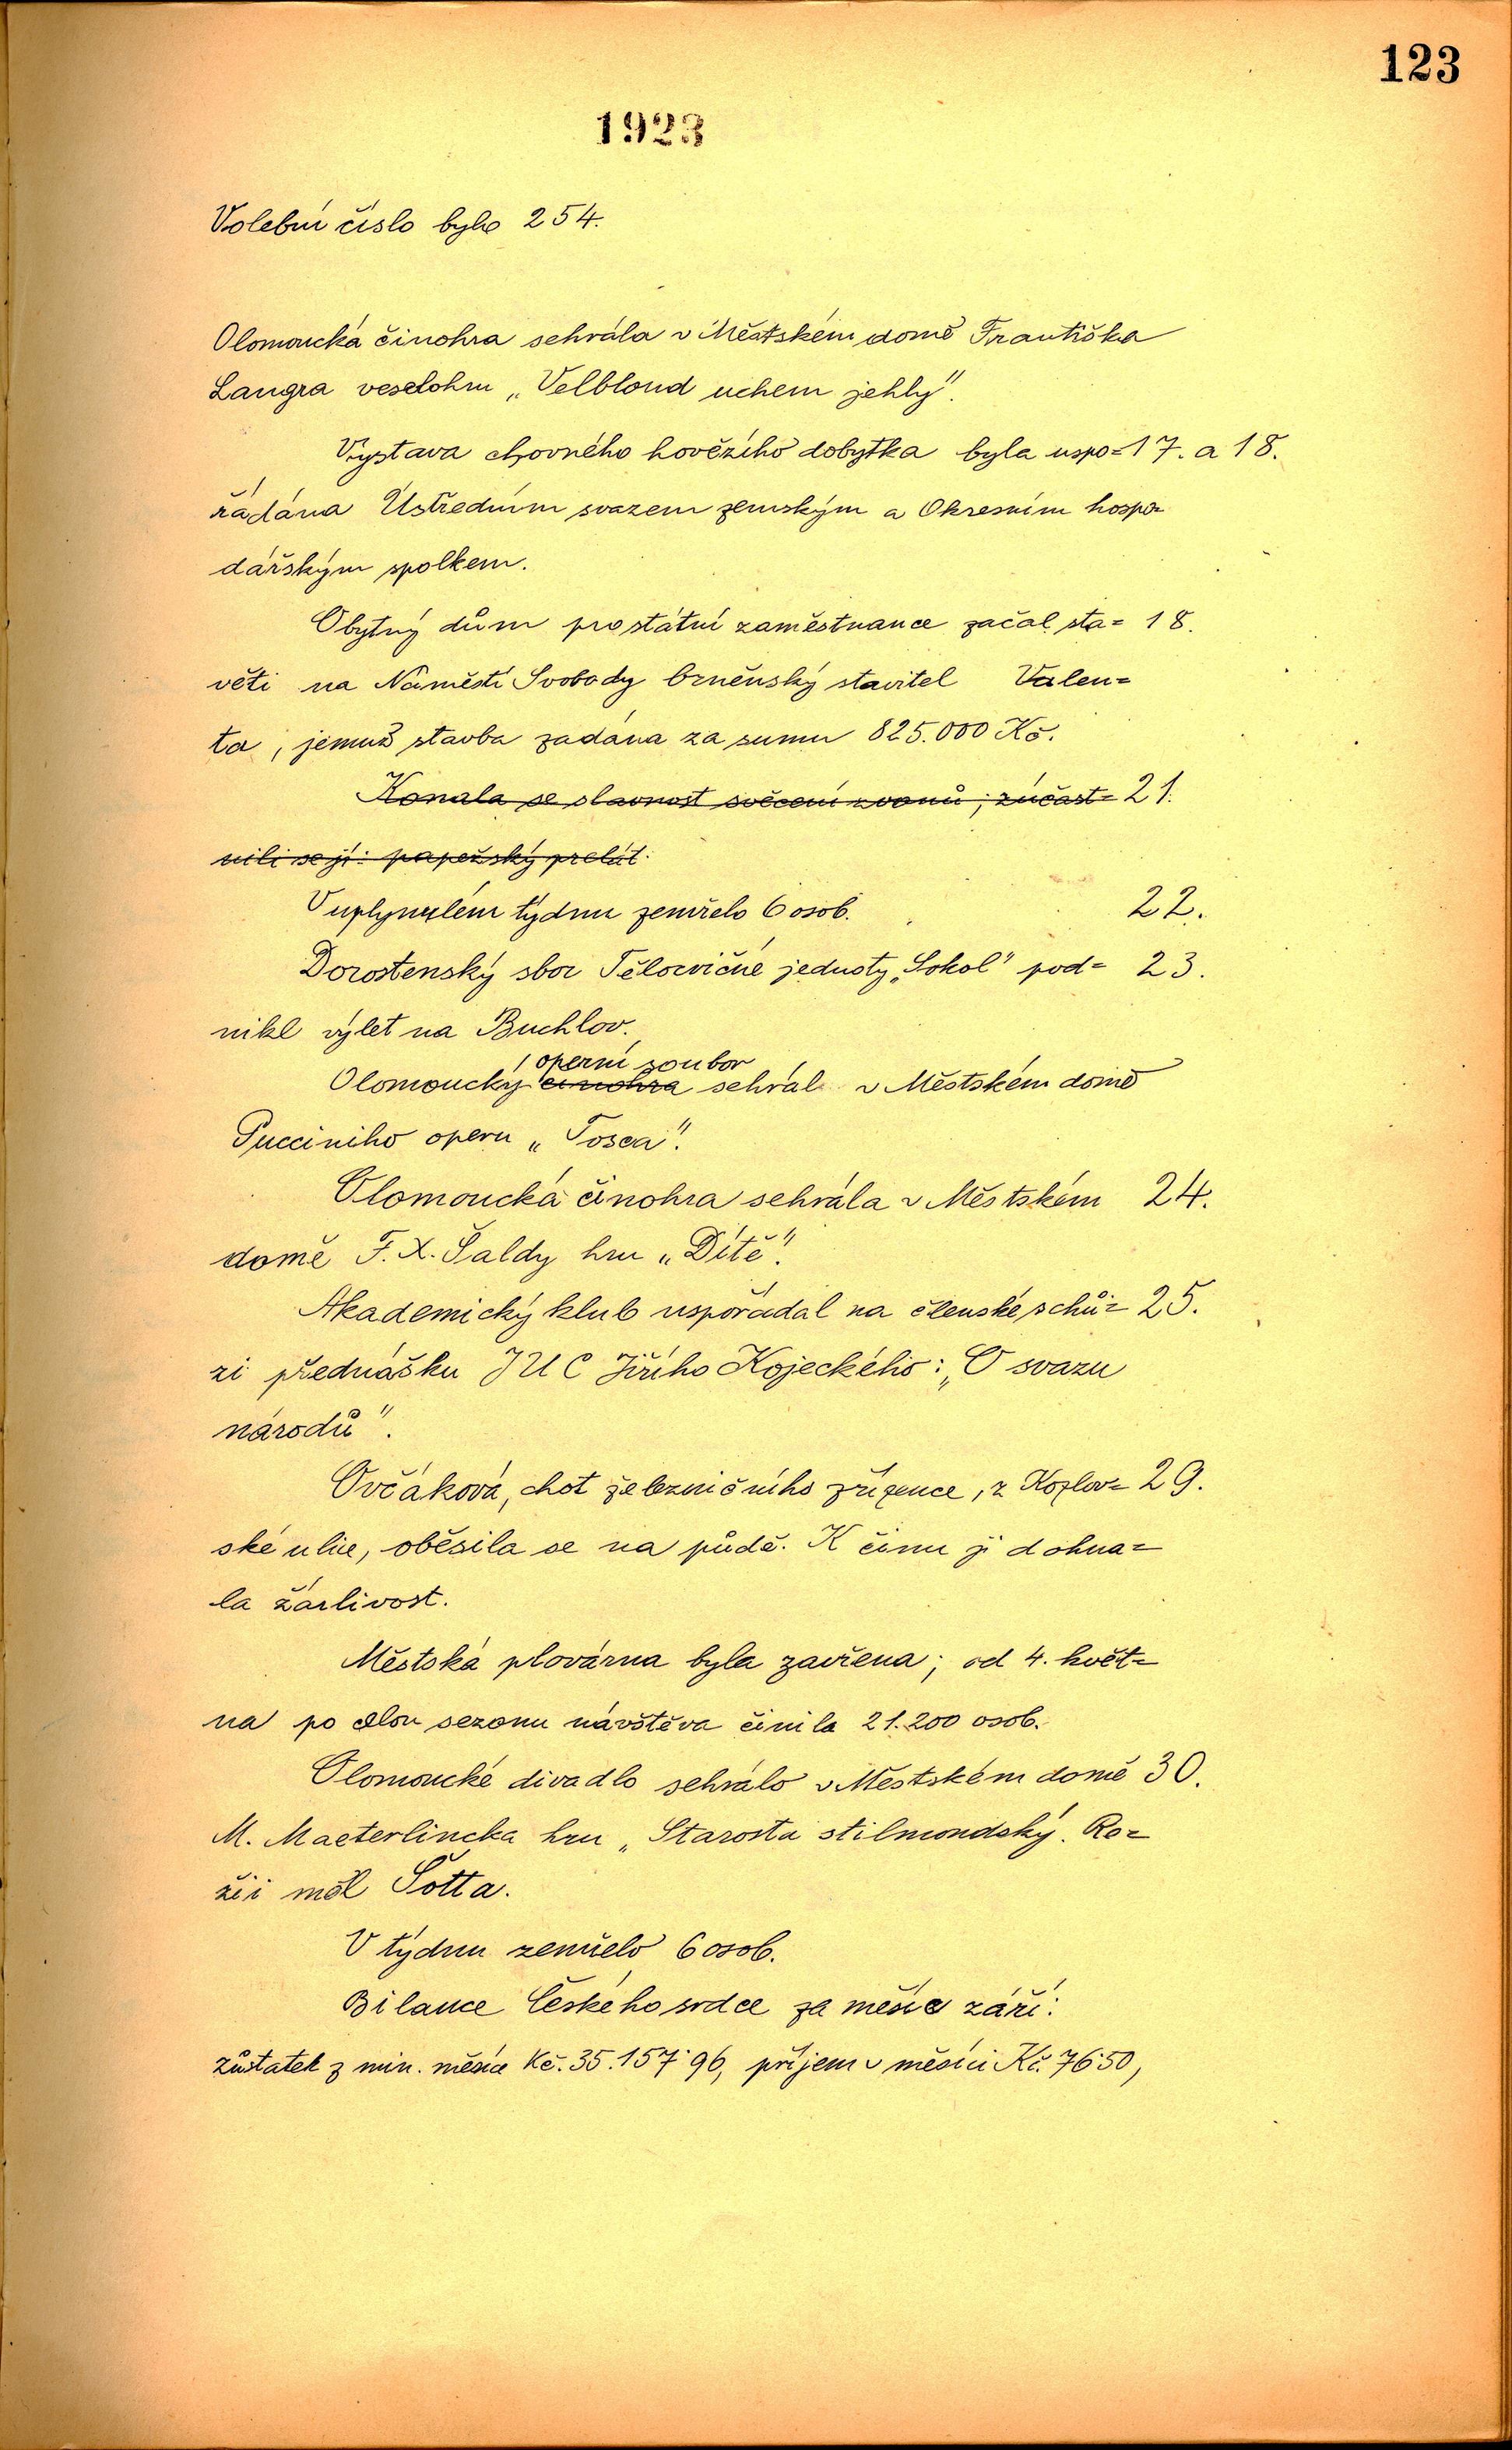 123
1923
Volební číslo bylo 254.
Olomoucká činohra sehrála v Městském domě Františka
Langra veselohru „Velbloud uchem jehly".
Výstava chovného hovězího dobytka byla uspo= 17. a 18.
řádána Ústředním svazem zemským a Okresním hospo-
dářským spolkem.
Obytný dům pro státní zaměstnance začal sta= 18.
věti na Náměstí Svobody brněnský stavitel Valen=
ta, jemuž stavba zadána za sumu 825.000 Kč.
Konala se slavnost svěcení zvonů; zúčast= 21.
nili se jí: papežský prelát.
V uplynulém týdnu zemřelo 6 osob. 22.
Dorostenský sbor Tělocvičné jednoty „Sokol" pod= 23.
nikl výlet na Buchlov.
operní soubor
Olomoucký činohra sehrál v Městském domě
Pucciniho operu „Tosca".
Olomoucká činohra sehrála v Městském 24.
domě F. X. Šaldy hru „Dítě".
Akademický klub uspořádal na členské schů= 25.
zi přednášku JUC Jiřího Kojeckého: „O svazu
národů".
Ovčáková, choť železničního zřízence, z Kozlov= 29.
ské ulice, oběsila se na půdě. K činu ji dohna=
la žárlivost.
Městská plovárna byla zavřena; od 4. květ=
na po celou sezonu návštěva činila 21.200 osob.
Olomoucké divadlo sehrálo v Městském domě 30.
M. Maeterlincka hru „Starosta stilmondský. Re=
žii měl Šotta.
V týdnu zemřelo 6 osob.
Bilance Českého srdce za měsíc září:
zůstatek z min. měsíce Kč. 35.157·96, příjem v měsíci Kč. 76·50,